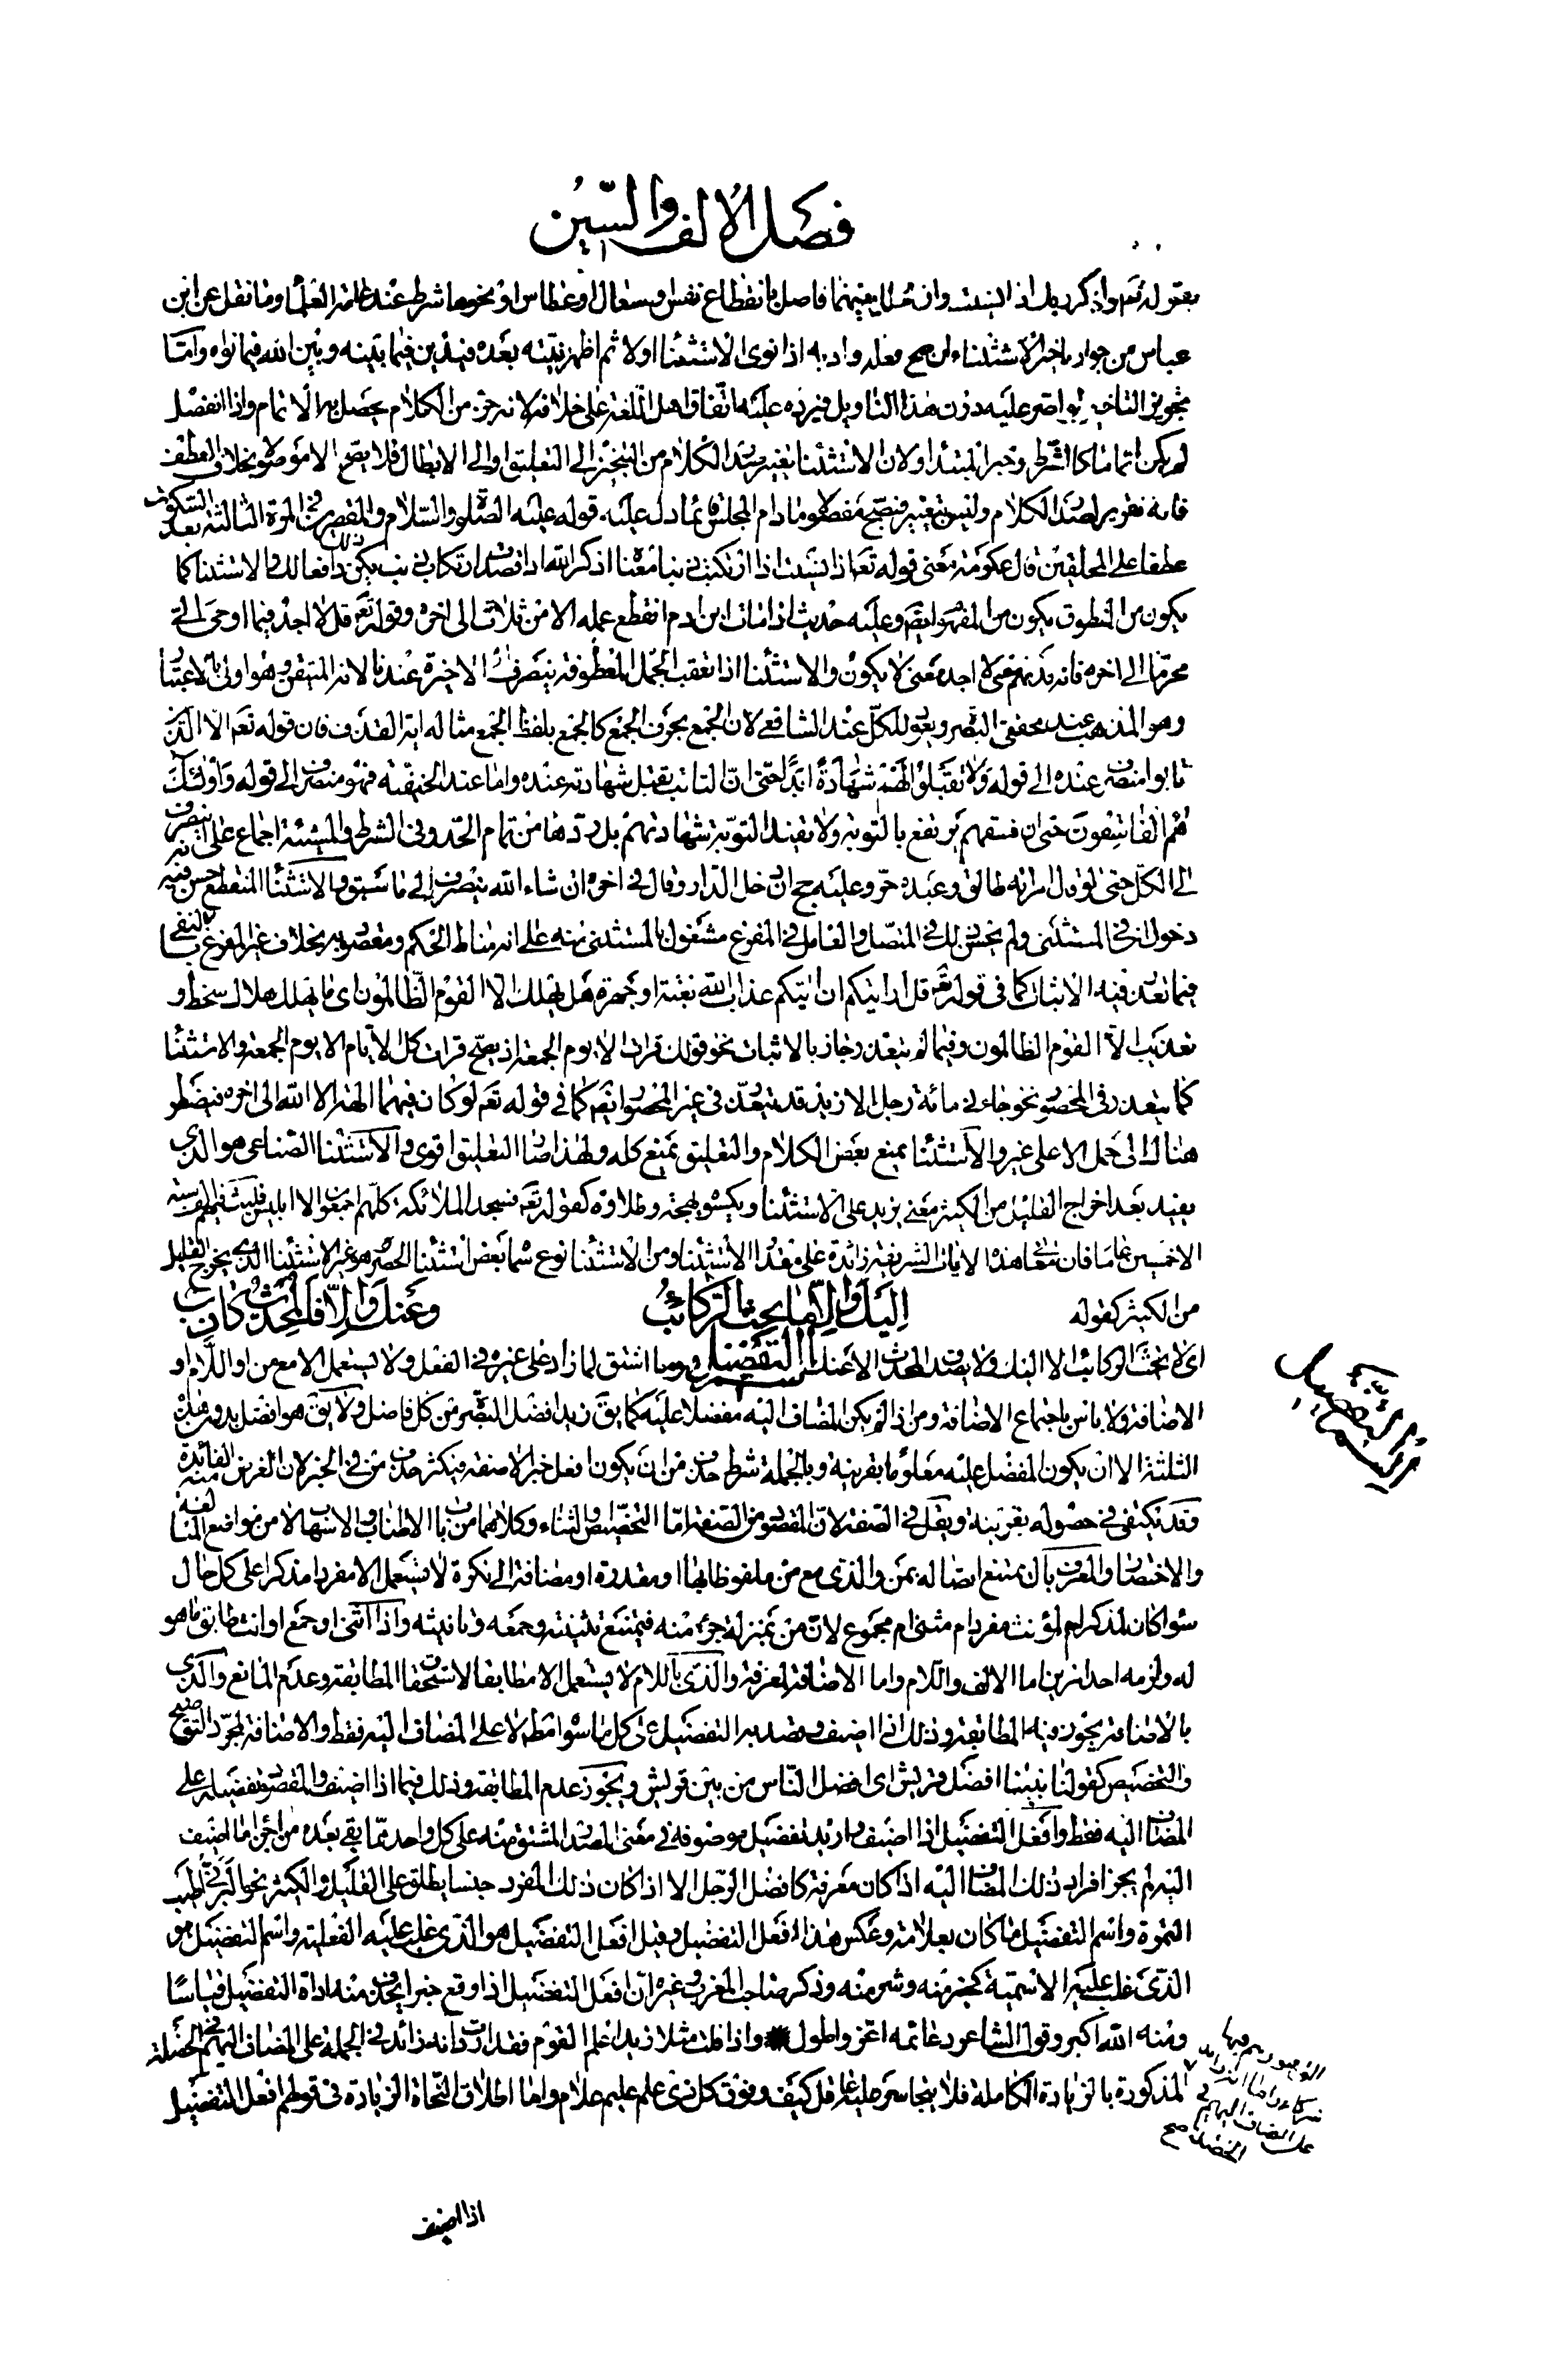 فصل الالف والسين
بقوله تعم واذكر ربك اذا نسيت وان تخلل بينهما فاصل بانقطاع نفس او سعال او عطاس او نحوها شرط عند عامة العلما وما نقل عن ابن
عباس من جواز تاخير الاستثناء ان صح فعله واد به اذا نوى الاستثنا اولا ثم اظهر نيته بعده فيدين فيما بينه وبين الله فيما نواه واما
تجويز التاخير لو اصر عليه دون هذا التاويل فيرده عليه اتفاق اهل اللغة على خلافه لانه جزء من الكلام يحصل به الاتمام واذا انفصل
لم يكن اتماما كالشرط وخبر المبتدا ولان الاستثنا تغيير صدر الكلام من التنجيز الى التعليق او الى الابطال فلا يصح الا موصولا بخلاف العطف
فانه تقرير لصدر الكلام وليس بتغيير فيصح مفصولا مادام المجلس قائما دل عليه قوله عليه الصلوة والسلام والمقصرين في المرة الثالثة بعد السكوت
عطفا على المحلقين قال عكرمة معنى قوله تعم اذا نسيت اذا ارتكبت ذنبا معناه اذكر الله اذا قصدت ارتكاب ذنب يكن ذلك دافعا لك والاستثنا كما
يكون من المنطوق يكون من المفهوم ايضا وعليه حديث اذا مات ابن ادم انقطع عمله الا من ثلاث الى اخره وقوله تعم قل لا اجد فيما اوحي الي
محرما الى اخره فانه قد يفهم من لا اجد معنى لا يكون والاستثنا اذا تعقب الجمل المعطوفة ينصرف الى الاخيرة عندنا لانه المتيقن وهو اولى بالاعتبار
وهو المذهب عند محققي البصرة ويعود للكل عند الشافعي لان الجمع بحرف الجمع كالجمع بلفظ الجمع مثاله اية القذف فان قوله تعم الا الذين
تابوا منصرف عنده الى قوله ولا تقبلوا لهم شهادة ابدا حتى ان التائب يقبل شهادته عنده واما عند الحنفية فهو منصرف الى قوله واولئك
هم الفاسقون حتى ان فسقهم يرتفع بالتوبة ولا يفيد التوبة شهادتهم بل ردها من تمام الحد وفي الشرط والمشيئة اجماع على انه ينصرف
الى الكل حتى لو قال امراته طالق وعبده حر وعليه حج ان دخل الدار وقال في اخره ان شاء الله ينصرف الى ما سبق والاستثنا المنقطع حسن فيه
دخول ان في المستثنى ولم يحسن ذلك في المتصل والعامل في المفرغ مشغول بالمستثنى منه على انه مناط الحكم ومقصود به بخلاف غير المفرغ بالنفي
فيما تعذر فيه الاثبات كما في قوله تعم قل ارايتكم ان اتيكم عذاب الله بغتة او جهرة هل يهلك الا القوم الظالمون اى ما يهلك هلاك سخط و
تعذيب الا القوم الظالمون وفيما لم يتعذر جاز بالاثبات نحو قولك قرات الا يوم الجمعة اذ يصح قرات كل الايام الا يوم الجمعة والاستثنا
كما يتعذر في المحصور نحو جاءني مائة رجل الا زيد قد يتعذر في غير المحصور ايضا كما في قوله تعم لو كان فيهما الهة الا الله الى اخره فيضطر
هناك الى حمل الا على غير والاستثنا يمنع بعض الكلام والتعليق يمنع كله ولهذا صار التعليق اقوى والاستثنا الصناعي هو الذي
يفيد بعد اخراج القليل من الكثير معنى يزيد على الاستثنا ويكسوه بهجة وطلاوة كقوله تعم فسجد الملائكة كلهم اجمعون الا ابليس فلبث فيهم الف سنة
الا خمسين عاما فان معاني هذه الايات الشريفة زائدة على مقدار الاستثنا ومن الاستثنا نوع سماه بعض استثنا الحصر وهو غير الاستثنا الذي يخرج القليل
من الكثير كقوله
اليك والا ما تحث الركائب
وعنك والا فالمحدث كاذب
اى لا تحث الركائب الا اليك ولا يصدق المحدث الا عنك اسم التفضيل وهو ما اشتق لما زاد على غيره في الفعل ولا يستعمل الا مع من او اللام او
الاضافة ولا باس باجتماع الاضافة ومن اذا لم يكن المضاف اليه مفضلا عليه كما يق زيد افضل البصرة من كل فاضل ولا يق هو افضل بدون هذه
الثلثة الا ان يكون المفضل عليه معلوما بقرينة وبالجملة شرط حذف من ان يكون افعل خبرا لا صفة فيكثر حذف من في الخبر لان الغرض منه الفائدة
وقد يكتفى في حصوله بقرينة ويقل في الصفة لان المقصود من الصفة اما التخصيص او الثناء وكلاهما من باب الاطناب والاسهاب لا من مواضع المبالغة
والاختصار والمعرف بال يمتنع اتصاله بمن والذي مع من ملفوظا بها او مقدرة او مضافة الى نكرة لا يستعمل الا مفردا مذكرا على كل حال
سواء كان لمذكر ام لمؤنث مفرد ام مثنى ام مجموع لان من بمنزلة جزء منه فيمتنع تثنيته وجمعه وتانيثه واذا اثني او جمع او انث طابق ما هو
له ولزمه احد امرين اما الالف واللام واما الاضافة لمعرفة والذي باللام لا يستعمل الا مطابقا لاستحقاق المطابقة وعدم المانع والذي
بالاضافة يجوز فيه المطابقة وذلك اذا اضيف وقصد به التفضيل على كل ما سواه مطلقا لا على المضاف اليه فقط والاضافة لمجرد التوضيح
والتخصيص كقولنا نبينا افضل قريش اى افضل الناس من بين قريش ويجوز عدم المطابقة وذلك فيما اذا اضيف والمقصود تفضيله على
المضاف اليه فقط وافعل التفضيل اذا اضيف واريد تفضيل موصوفه في معنى المصدر المشتق منه على كل واحد مما بقي بعده من اجزاء ما اضيف
اليه لم يجز افراد ذلك المضاف اليه اذا كان معرفة كافضل الرجل الا اذا كان ذلك المفرد جنسا يطلق على القليل والكثير نحو البرني اطيب
التمرة واسم التفضيل ما كان بعلامته وعكس هذا افعل التفضيل وقيل افعل التفضيل هو الذي غلب عليه الفعلية واسم التفضيل هو
الذي غلب عليه الاسمية كخير منه وشر منه وذكر صاحب المغرب وغيره ان افعل التفضيل اذا وقع خبرا يحذف منه اداة التفضيل قياسا
ومنه الله اكبر وقول الشاعر دعائمه اعز واطول واذا قلت مثلا زيد اعلم القوم فقد اردت انه زائد في الجملة على المضاف اليهم في الخصلة
المذكورة بالزيادة الكاملة قل كيف وفوق كل ذي علم عليم علام واما اطلاق النحاة الزيادة في قولهم افعل التفضيل
اذا اضيف
اسم التفضيل